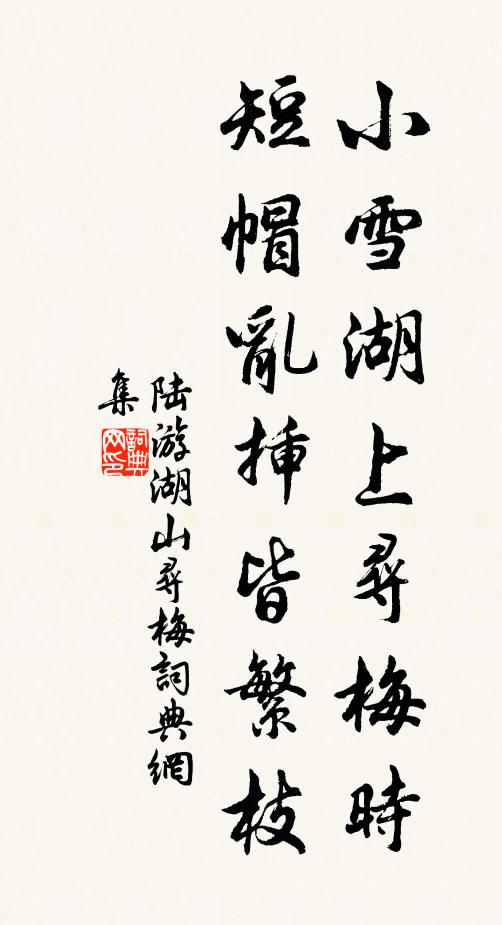 小雪湖上尋梅時
短帽亂插皆繁枝
陆游湖山尋梅詞典網
集
詞典
网印